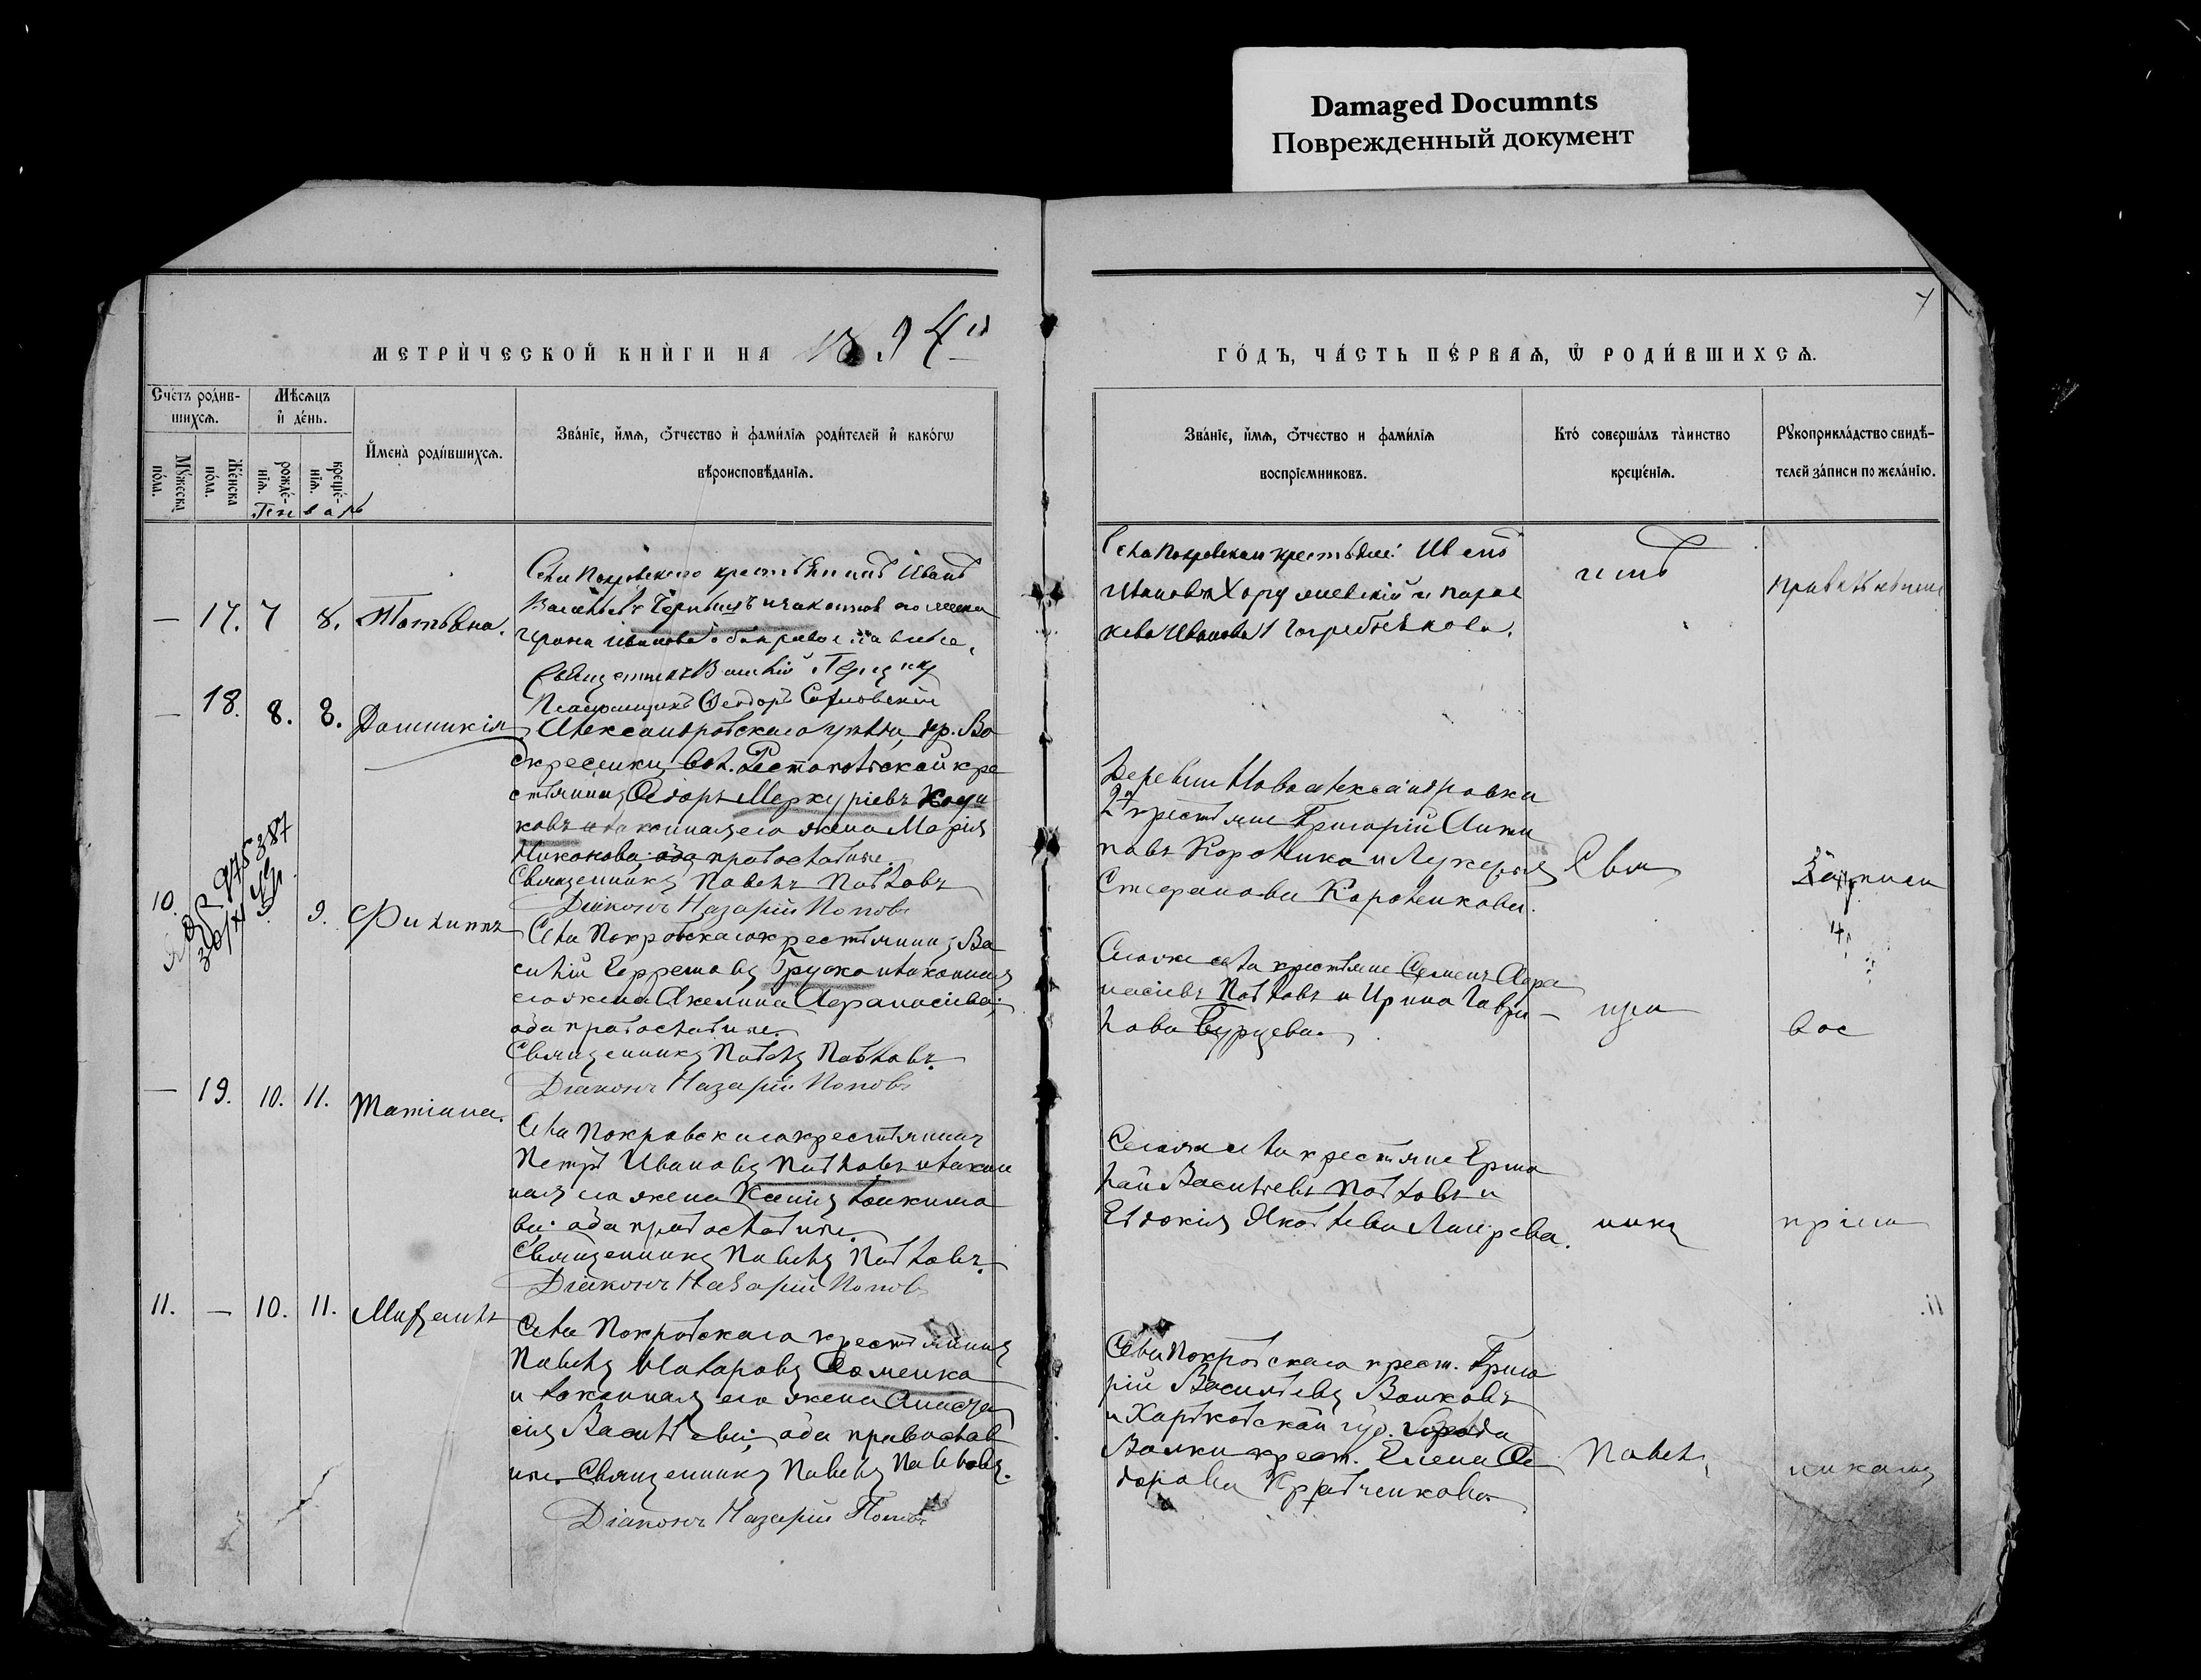 Damaged Documnts
Поврежденный документ
МЕТРИ́ЧЕСКОЙ КНИ́ГИ НА 1894й
ГО́ДЪ, ЧА́СТЬ ПЕ́РВАЯ, Ѽ РОДИ́ВШИХСѦ.
7
Сче́тъ роди́в-
шихсѧ.
Мѣ́сѧцъ
и҆ де́нь.
Му́жеска
по́ла.
Же́нска
по́ла.
рожде́-
нїѧ.
креще́-
нїѧ.
Генварь
И҆мена̀ роди́вшихсѧ.
Зва́нїе, и҆́мѧ, ѻ҆́тчество и҆ фами́лїѧ роди́телей и҆ како́гѡ
вѣроисповѣ́данїѧ.
Зва́нїе, и҆́мѧ, ѻ҆́тчество и фами́лїѧ
воспрїе́мниковъ.
Кто́ соверша́лъ та̀инство
креще́нїѧ.
Рꙋкоприкла́дство свидѣ́-
телей за́писи по жела́нїю.
— 17. 7 8. Татьяна.
Села Покровского крестьянинъ Иванъ
Васильевъ и законная его жена
Ивановна оба православные,
Священникъ Василій
Псаломщикъ Ѳеодоръ
Села Покровскаго крестьяне: Иванъ
Ивановъ и Парас
кева Иванова
— 18. 8. 8. Домникія
Александровскаго уѣзда, др. Во
скресенки, вол. кре
стьянинъ Ѳедоръ Меркуріевъ
ковъ и законная его жена Марія
Никонова; оба православные.
Священникъ Павелъ Павловъ
Діаконъ Назарій Поповъ
Деревни Новоалександровки
2й крестьяне Григорій Анти
повъ Короленко и Лукерья
Стефанова Короленкова.
Свя
Записи
10. — 9. 9. Филиппъ
975387
Села Покровскаго крестьянинъ Ва
силій Ефремовъ Груско и законная
его жена Акелина Афанасіева;
оба православные.
Священникъ Павелъ Павловъ.
Діаконъ Назарій Поповъ
Сегоже села крестьяне Семенъ Афа
насіевъ Павловъ и Ирина Гаври-
лова Бурцева.
вос
— 19. 10. 11. Татіана.
Села Покровскаго крестьянинъ
Петръ Ивановъ Павловъ и закон
ная его жена Ксенія Іоакимо
ва; оба православные.
Священникъ Павелъ Павловъ.
Діаконъ Назарій Поповъ
Сегоже села крестьяне Ермо
лай Васильевъ Павловъ и
Евдокія Яковлева
никъ
пріем
11. — 10. 11. Михаилъ
Села Покровскаго крестьянинъ
Павелъ Назаровъ Хоменко
и законная его жена Анаста
сія Васильева; оба православ
ные. Священникъ Павелъ Павловъ.
Діаконъ Назарій Поповъ
Села Покровскаго крест. Григо
рій Васильевъ Волковъ
и Харьковской губ. города
Валки крест. Елена Ѳе
дорова Кравченкова.
Павелъ
никамъ